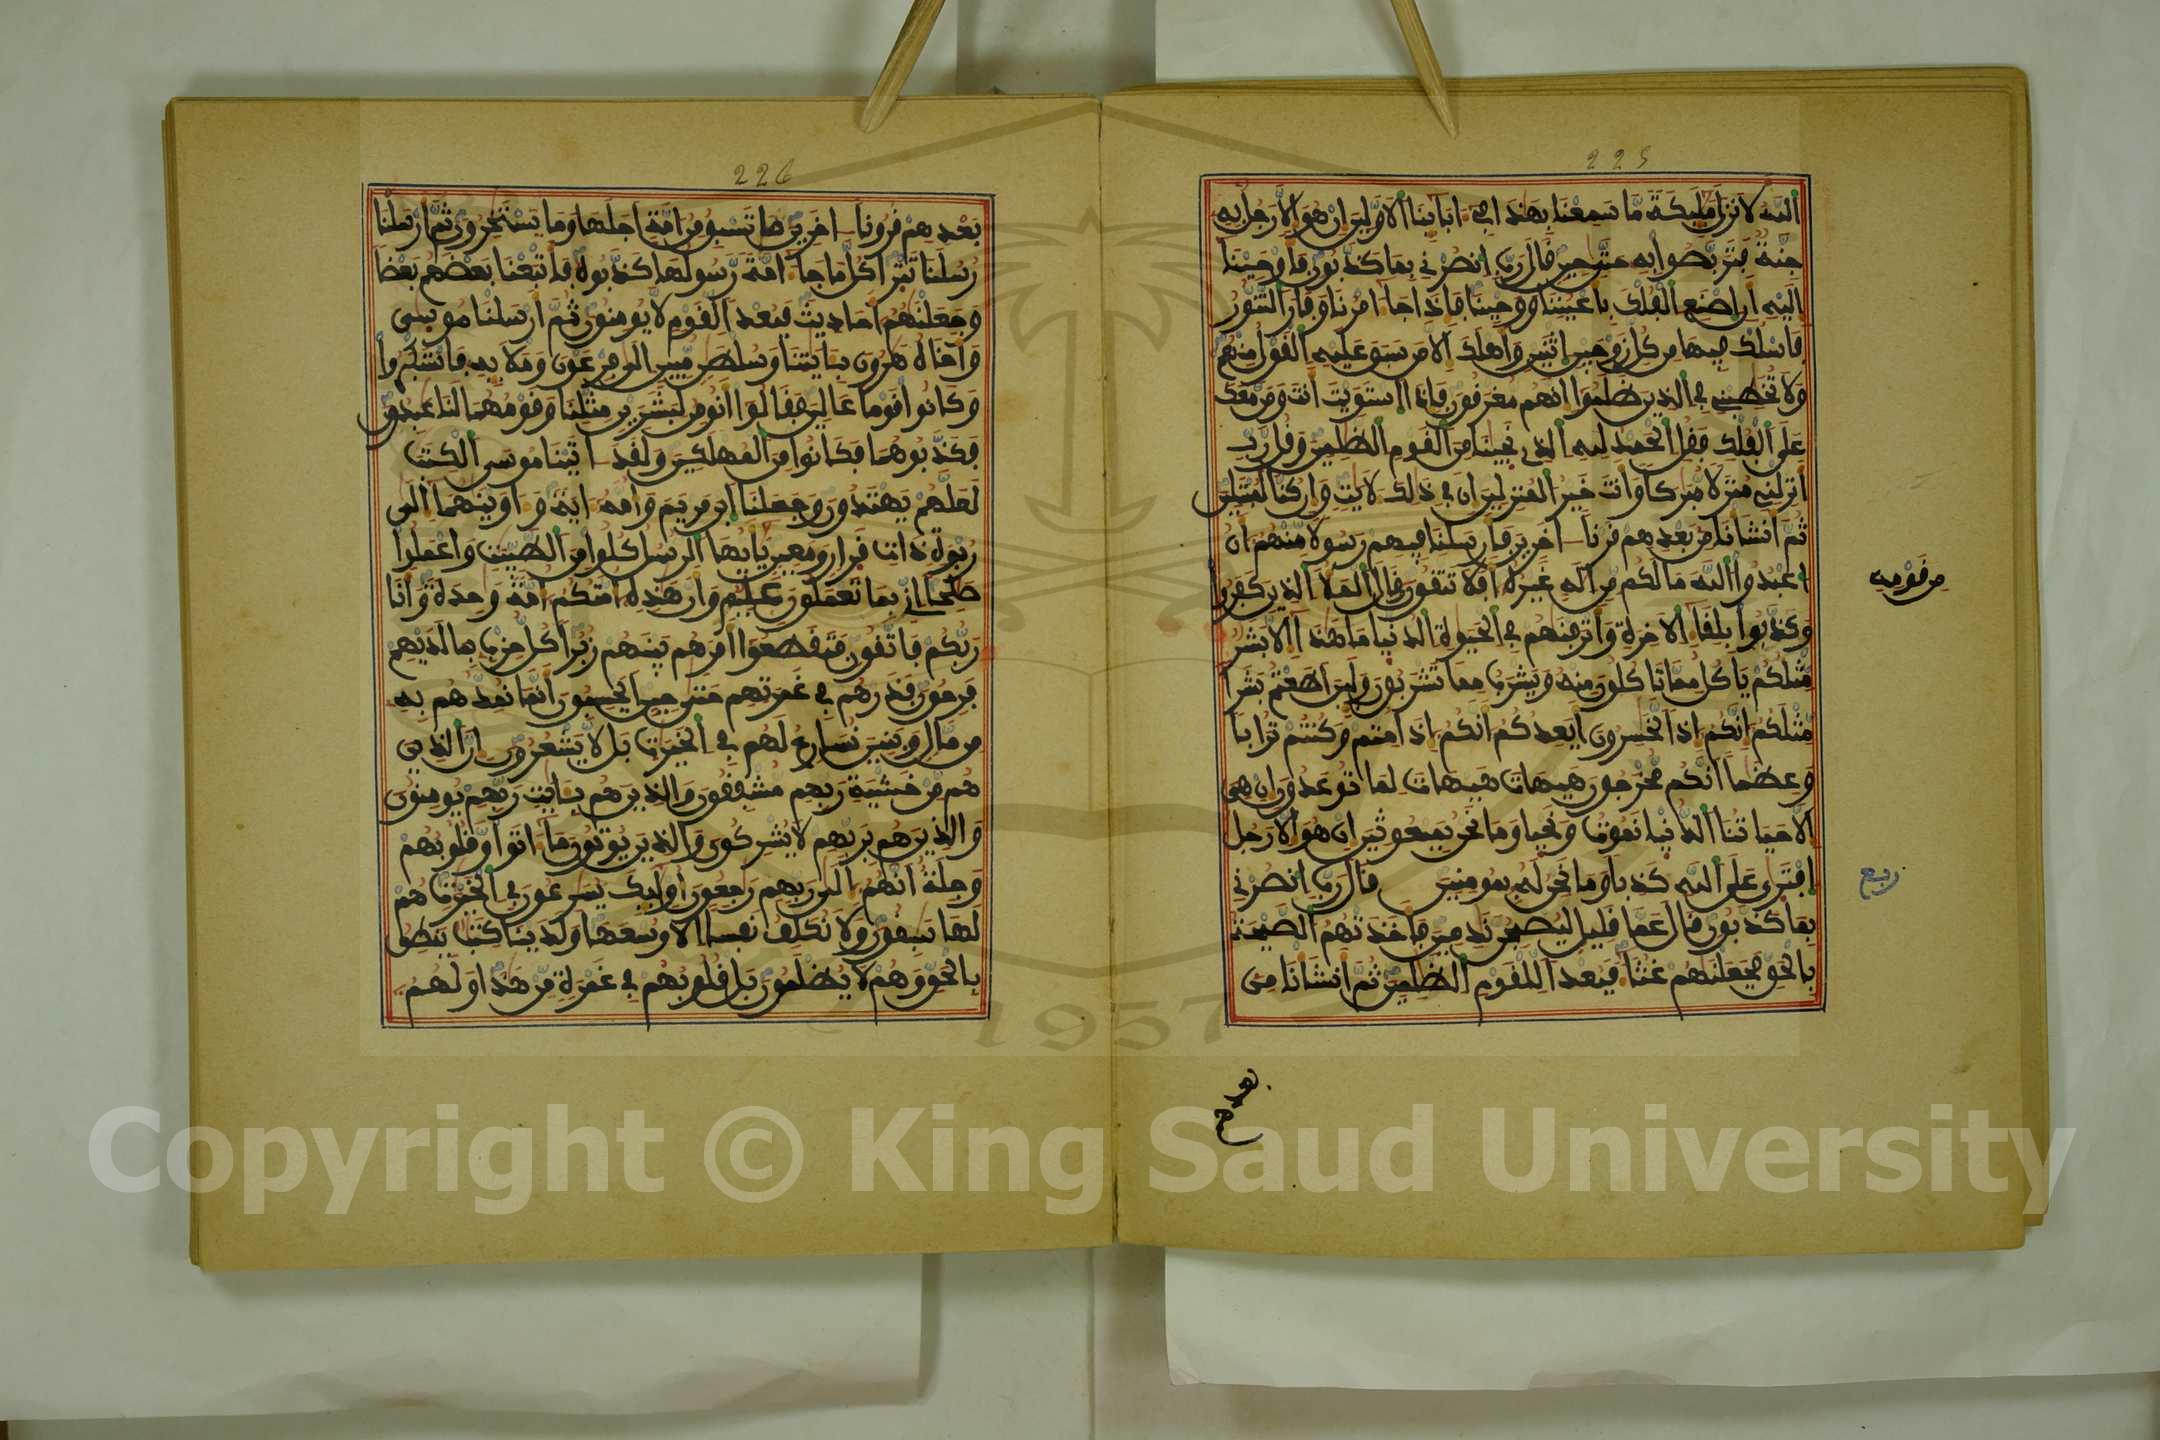 225
الله لانزل مليكة ما سمعنا بهذا في ابآينا الاولين ان هو الا رجل به
جنة فتربصوا به حتى حين قال رب انصرني بما كذبون فاوحينا
اليه ان اصنع الفلك باعيننا ووحينا فاذا جا امرنا وفار التنور
فاسلك فيها من كل زوجين اثنين واهلك الا من سبق عليه القول منهم
ولا تخطبني في الذين ظلموا انهم مغرقون فاذا استويت انت ومن معك
على الفلك فقل الحمد لله الذي نجينا من القوم الظلمين وقل رب
انزلني منزلا مبركا وانت خير المنزلين ان في ذلك لايت وان كنا لمبتلين
ثم انشانا من بعدهم قرنا اخرين فارسلنا فيهم رسولا منهم ان
اعبدوا الله ما لكم من اله غيره افلا تتقون وقال الملا الذين كفروا
من قومه
وكذبوا بلقا الاخرة واترفنهم في الحيوة الدنيا ما هذا الا بشر
مثلكم ياكل مما تاكلون منه ويشرب مما تشربون ولين اطعتم بشرا
مثلكم انكم اذا لخسرون ايعدكم انكم اذا متم وكنتم ترابا
وعظما انكم مخرجون هيهات هيهات لما توعدون ان هي
الا حياتنا الدنيا نموت ونحيا وما نحن بمبعوثين ان هو الا رجل
افترى على الله كذبا وما نحن له بمومنين قال رب انصرني
ربع
بما كذبون قال عما قليل ليصبحن ندمين فاخذتهم الصيحة
بالحق فجعلنهم غثا فبعدا للقوم الظلمين ثم انشانا من
بعدهم
226
بعدهم قرونا اخرين ما تسبق من امة اجلها وما يستخرون ثم ارسلنا
رسلنا تترا كل ما جا امة رسولها كذبوه فاتبعنا بعضهم بعضا
وجعلنهم احاديث فبعدا لقوم لا يومنون ثم ارسلنا موسى
واخاه هرون بايتنا وسلطن مبين الى فرعون وملايه فاستكبروا
وكانوا قوما عالين فقالوا انومن لبشرين مثلنا وقومهما لنا عبدون
فكذبوهما فكانوا من المهلكين ولقد اتينا موسى الكتب
لعلهم يهتدون وجعلنا ابن مريم وامه اية واوينهما الى
ربوة ذات قرار ومعين يايها الرسل كلوا من الطيبت واعملوا
صلحا اني بما تعملون عليم وان هذه امتكم امة وحدة وانا
ربكم فاتقون فتقطعوا امرهم بينهم زبرا كل حزب بما لديهم
فرحون فذرهم في غمرتهم حتى حين ايحسبون انما نمدهم به
من مال وبنين نسارع لهم في الخيرت بل لا يشعرون ان الذين
هم من خشية ربهم مشفقون والذين هم بايت ربهم يومنون
والذين هم بربهم لا يشركون والذين يوتون ما اتوا وقلوبهم
وجلة انهم الى ربهم رجعون اوليك يسرعون في الخيرت وهم
لها سبقون ولا نكلف نفسا الا وسعها ولدينا كتب ينطق
بالحق وهم لا يظلمون بل قلوبهم في غمرة من هذا ولهم
Copyright © King Saud University
1957